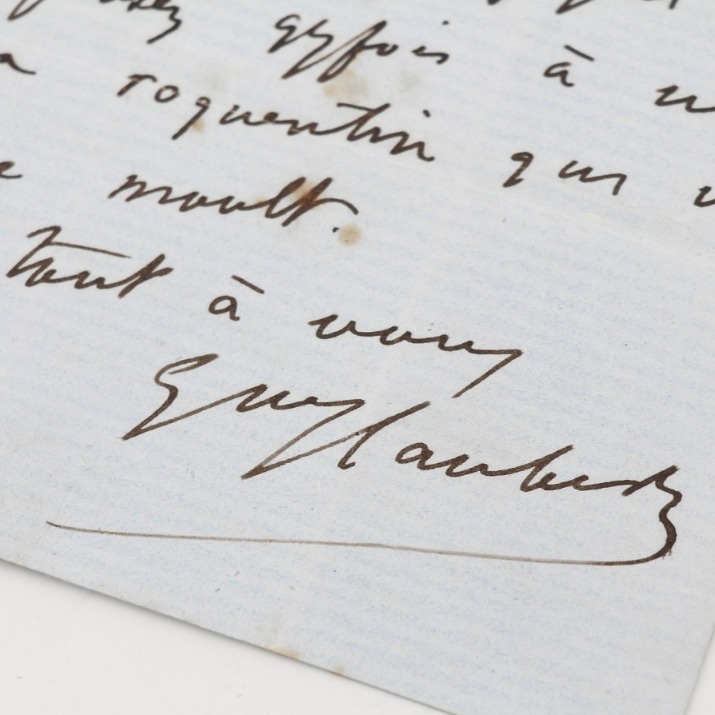 qqfois à
roquentin qui
moult.
tout à vous
Gve Flaubert